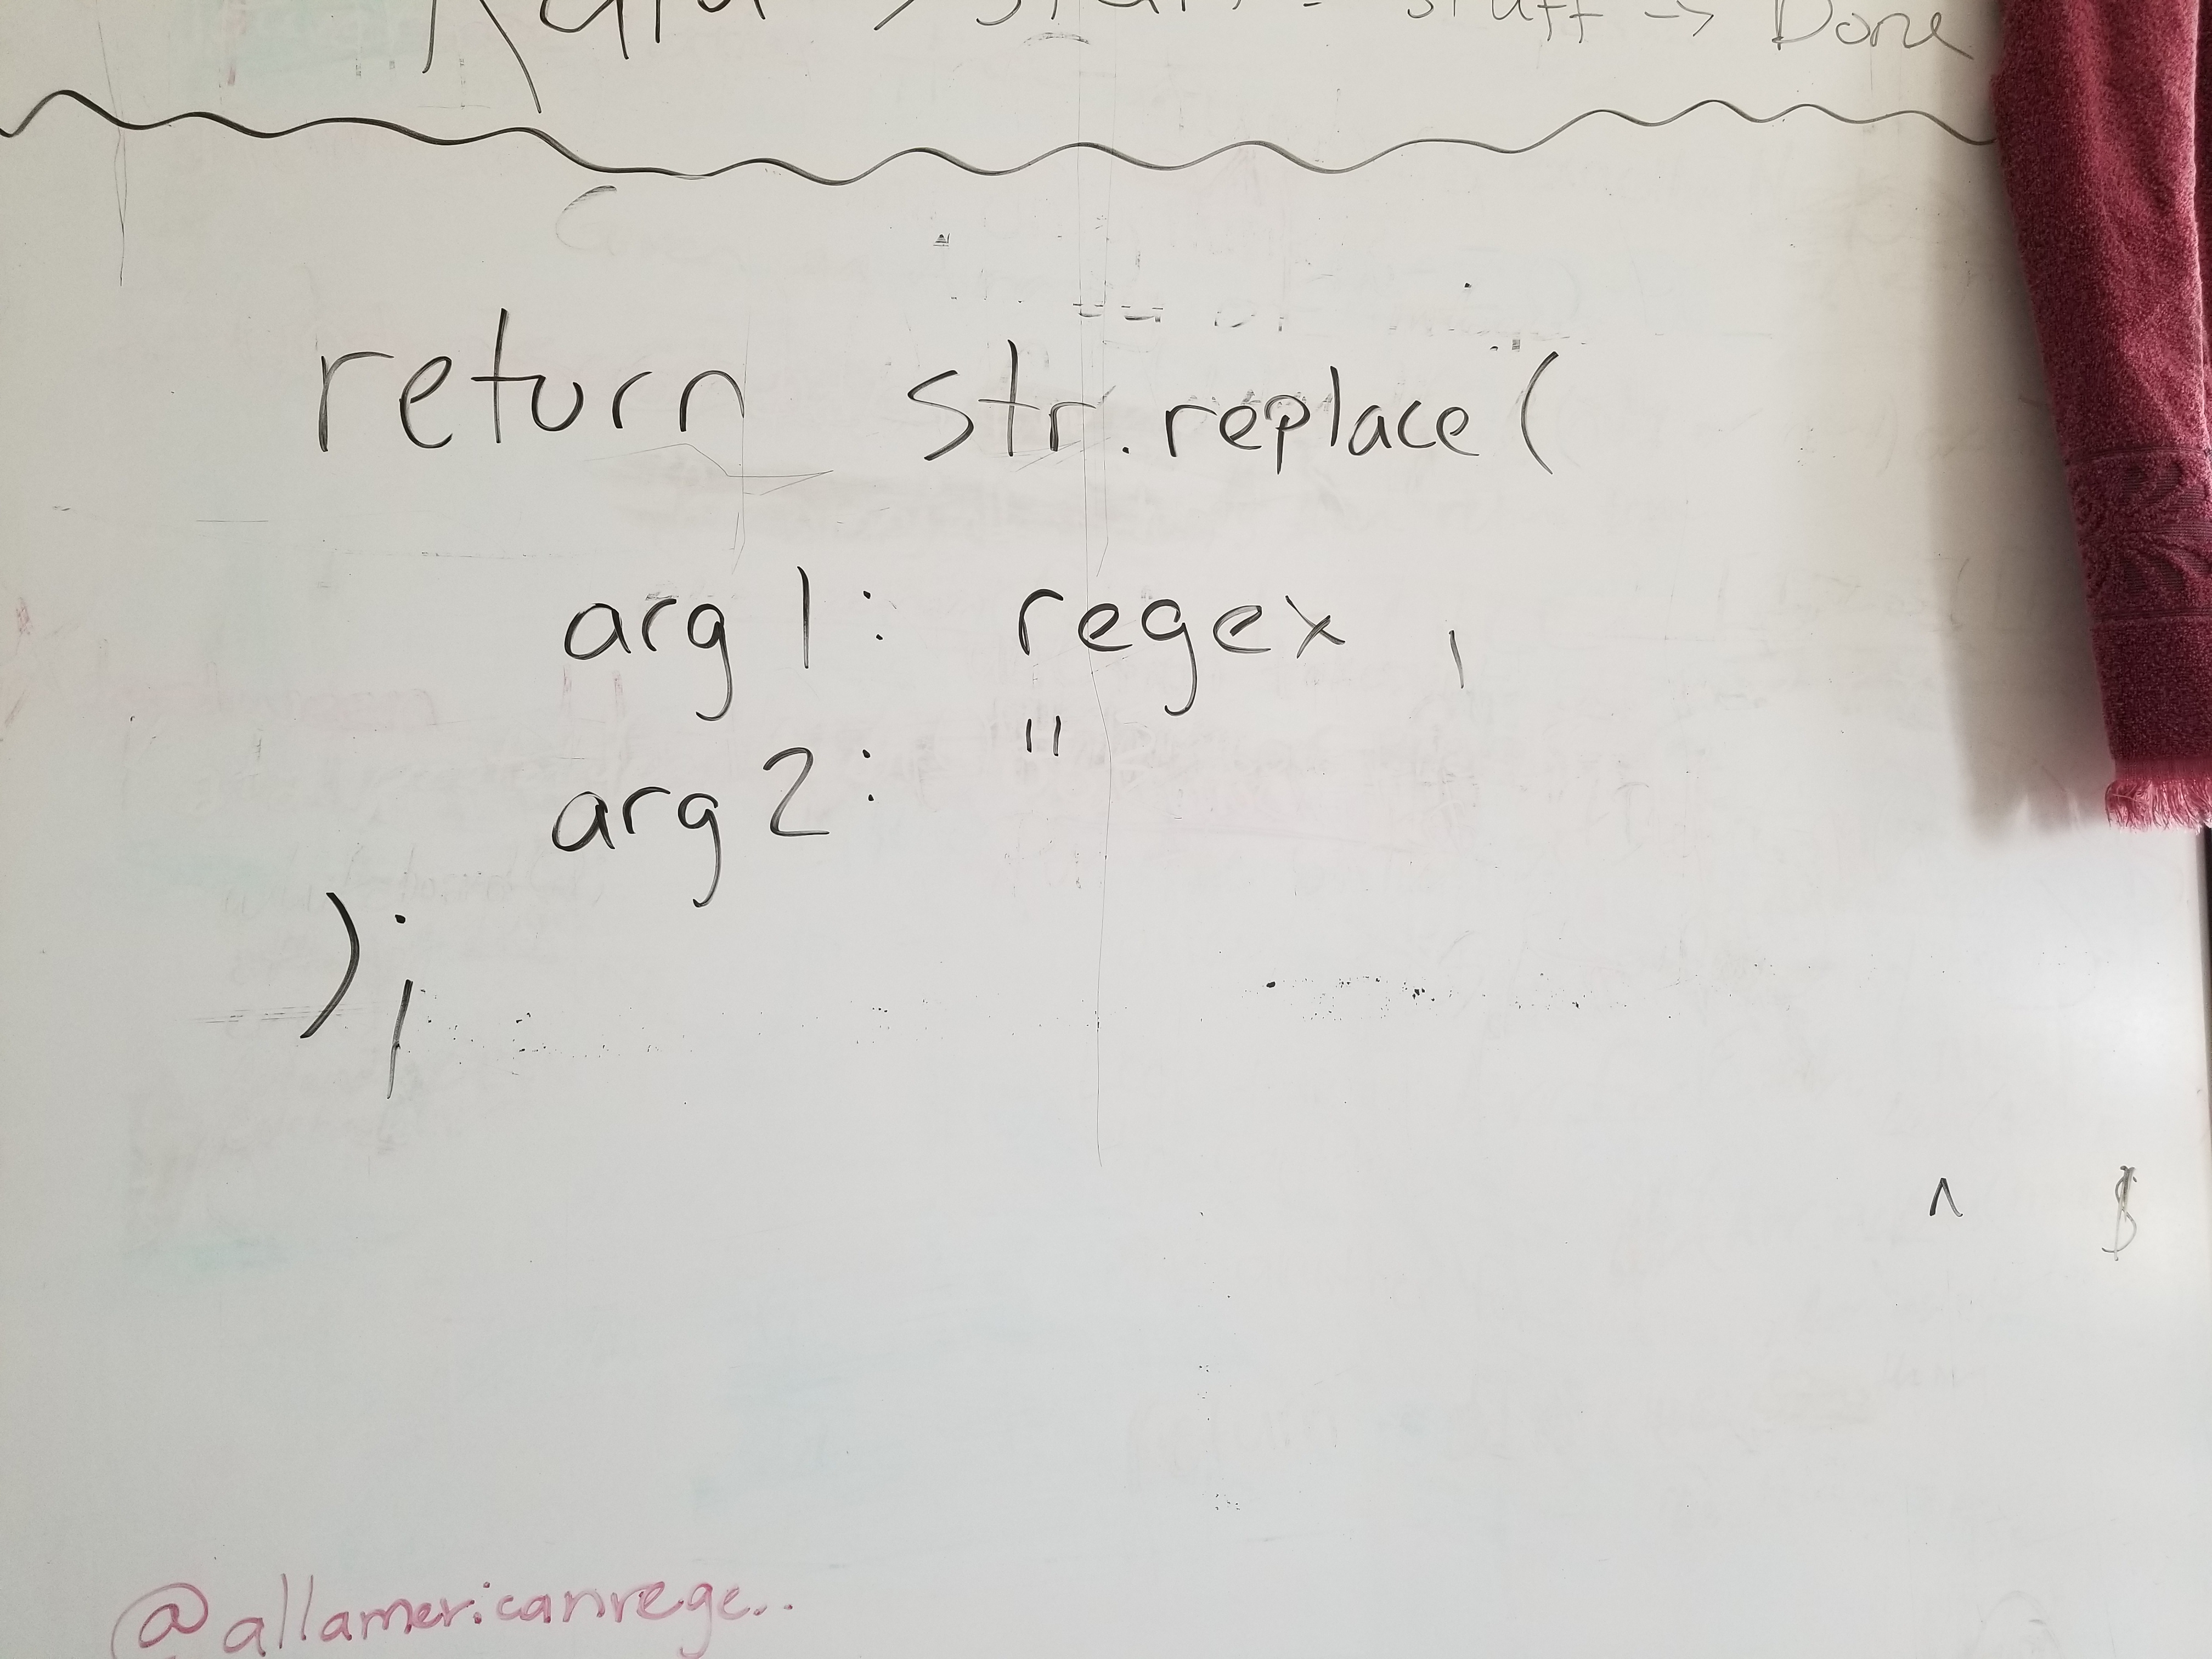 stuff -> Done
return str.replace(
arg 1: regex ,
arg 2: "
);
^ $
@allamericanrege..